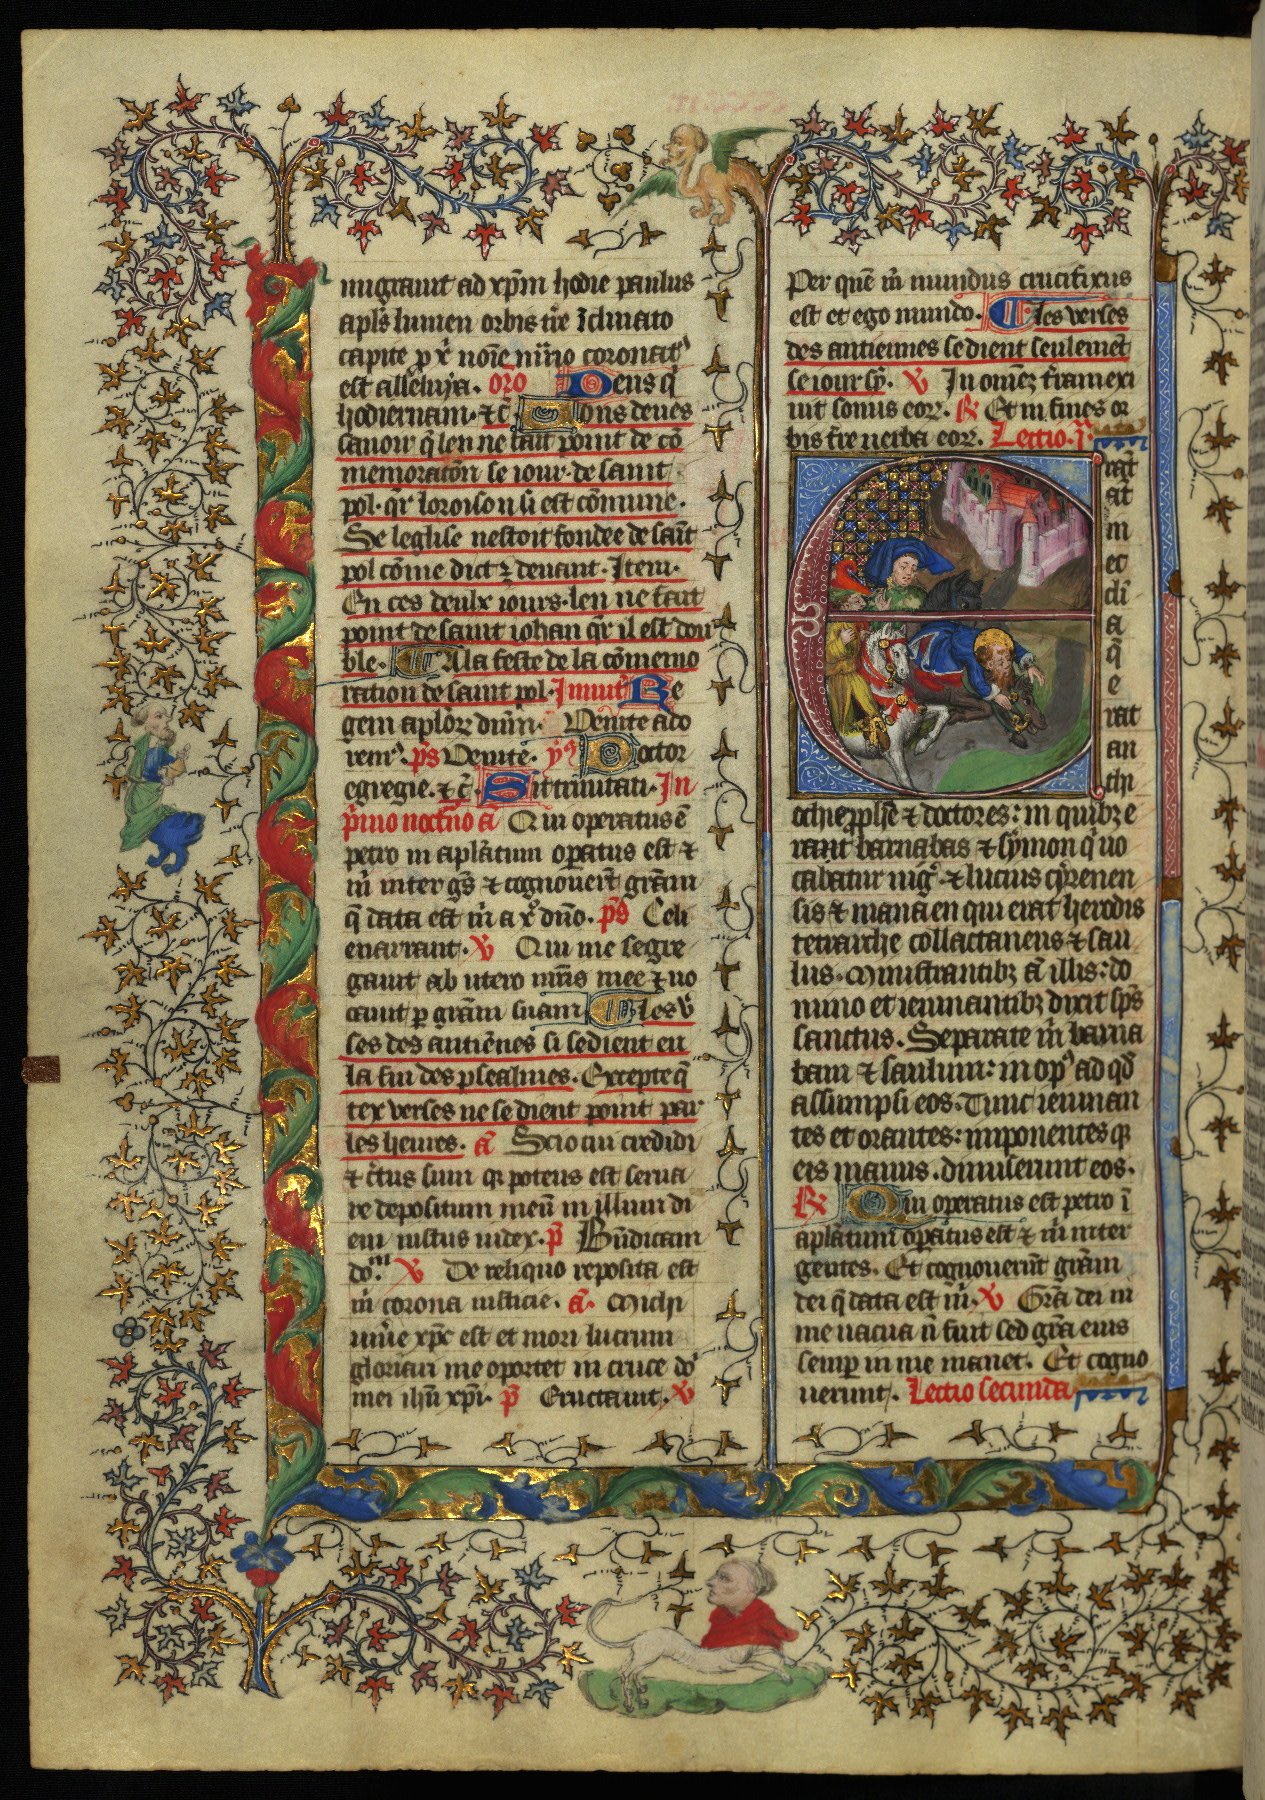 migravit ad xp̄m hodie paulus
apl̄s lumen orbis tr̄e Iclinato
capite p xp̄i noīe nimio coronatꝰ
est allelu̅ya. or̄o Deus q̄
hodiernam. ⁊c̄. Nons deues
sauoir q̄ len ne fait point de cō
memoratōn le iour de saint
pol. qr̄ loroison si est cōmune.
Se leglise nestoit fondee de saīt
pol cōme dict ⁊ deuant. Item.
En ces deulx iours. len ne fait
point de saint iohan qr̄ il est dou
ble. A la feste de la cōmemo
ration de saint pol. Inuitꝰ Re
gem aplōꝝ dn̄m. Venite ado
remꝰ. p̄s Venite. yꝰ Doctor
egregie. ⁊c̄. Sit trinitati. In
p̄mo noct̄no an̄ Qui operatus ē
petro in apl̄atum opatus est ⁊
m̄ inter gēs ⁊ cognouert̄ grām
q̄ data est m̄ a xp̄o dn̄o. p̄s Celi
enarrant. v̄ Qui me segre
gauit ab utero mr̄is mee ⁊ uo
cauit p grām suam Les v̄
ses des antiēnes si se dient en
la fin des psealmes. Excepte q̄
tex verses ne se dient point par
les heures. an̄ Scio cui credidi
⁊ c̄tus sum qꝫ potens est serua
re depositum meū in illum di
em iustus iudex. p̄ Bn̄dicam
do.m v̄ De reliquo reposita est
m̄ corona iusticie. an̄. Michi
uiuere xp̄c est et mori lucrum
gloriari me oportet in cruce do
mei ihū xp̄i. p̄ Eructauit. v̄
Per quē m̄ mundus crucifixus
est et ego mundo. Les verses
des antiennes se dient seulemēt
le iour sy. v̄ In omēz terram exi
uit sonus eoꝝ. R̄ Et in fines or
bis tr̄e uerba eoꝝ. Lectio .ia.
Erāt
at̄
in
ec
cli
a
q̄
e
rat
an
thi
ochie pphē ⁊ doctores: in quibꝫ e
rant barnabas ⁊ symon q̄ uo
cabatur nigr̄. ⁊ lucius cyrenen
sis ⁊ manaen qui erat herodis
tetrarche collactaneus ⁊ sau
lus. Ministrantibꝫ aū illis: do
mino et ieiunantibꝫ dixit sp̄s
sanctus. Separate m̄ barna
bam ⁊ saulum: in opꝰ ad qd̄
assumpsi eos. Tunc ieiunan
tes et orantes: imponentes qꝫ
eis manus. dimiserunt eos.
R̄ Qui operatus est petro ī
apl̄atum opatus est ⁊ m̄ inter
gentes. Et cognouerūt grām
dei q̄ data est m̄. v̄ Grā dei in
me uacua n̄ fuit sed grā eius
semp in me manet. Et cogno
uerunt. Lectio secunda